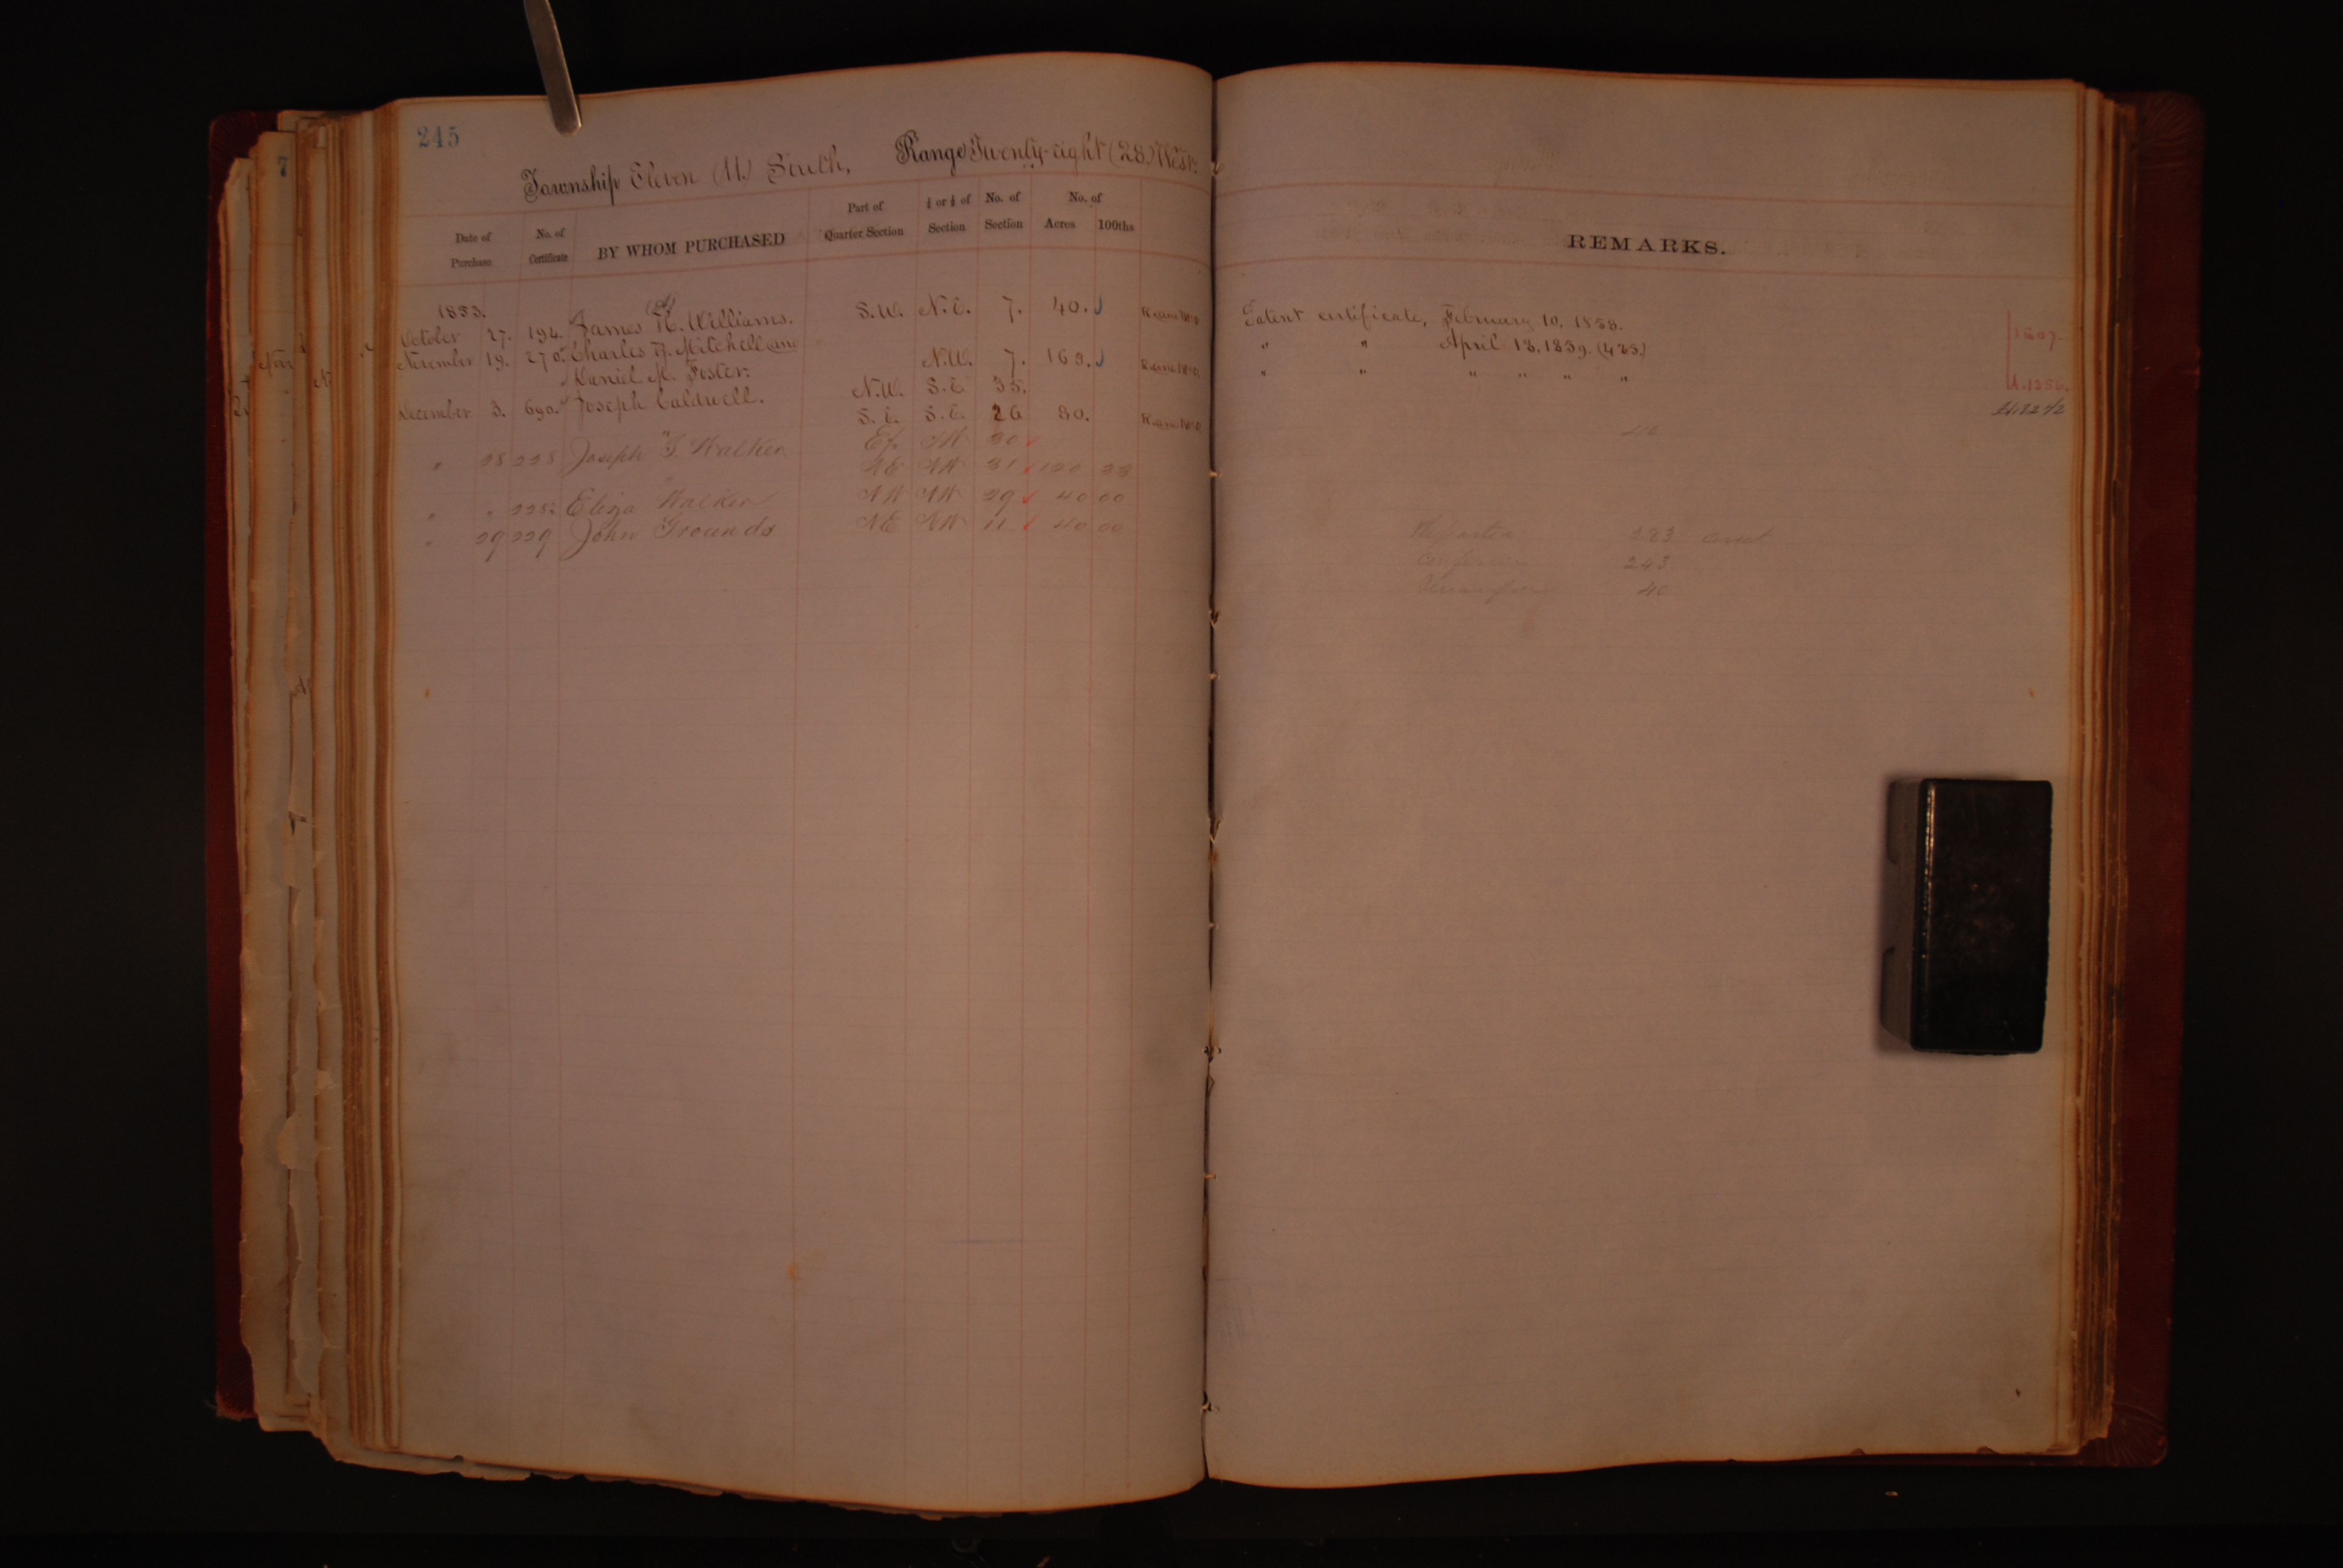 245
Township Eleven (11) South, Range Twenty-eight (28) West.
Date of Purchase No. of Certificate BY WHOM PURCHASED Part of Quarter Section ½ or ¼ of Section No. of Section No. of Acres 100ths REMARKS.
1853.
October 27. 194. James H. Williams. S.W. N.E. 7. 40. Patent certificate, February 10, 1858.
1607.
November 19. 270. Charles B. Mitchell and N.W. 7. 163. " " April 13, 1859. (425.)
Daniel M. Foster. N.W. S.E. 35. " " " " " "
December 3. 690. Joseph Caldwell. S.E. S.E. 26 80.
" 28 228 Joseph G. Walker Ef SW 30
NE NW 31 120 33
" " 228½ Eliza Walker NW NW 29 40 00
" 29 229 John Grounds NE NW 11 40 00
283
243
40